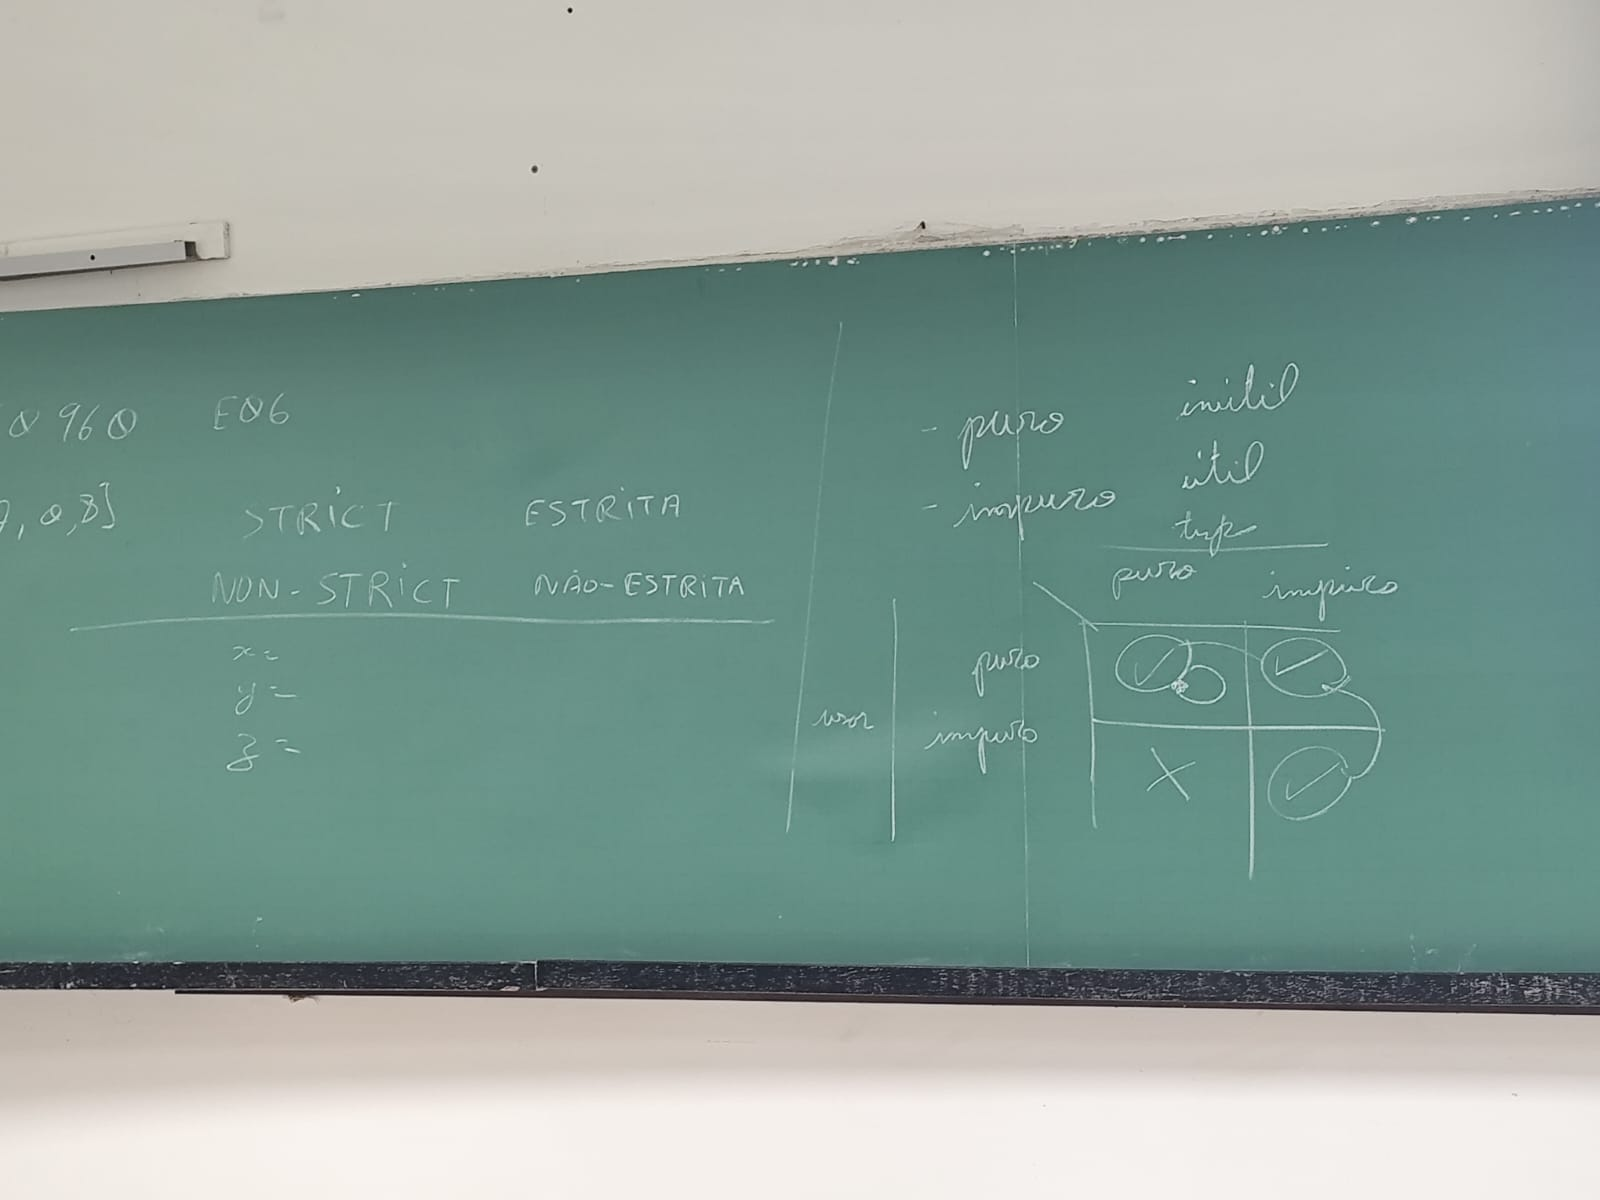 0960 E06
, 0,8]
STRICT ESTRITA
NON-STRICT NÃO-ESTRITA
x=
y=
z=
- puro
- impuro
inútil
útil
puro impuro
usar
puro
impuro